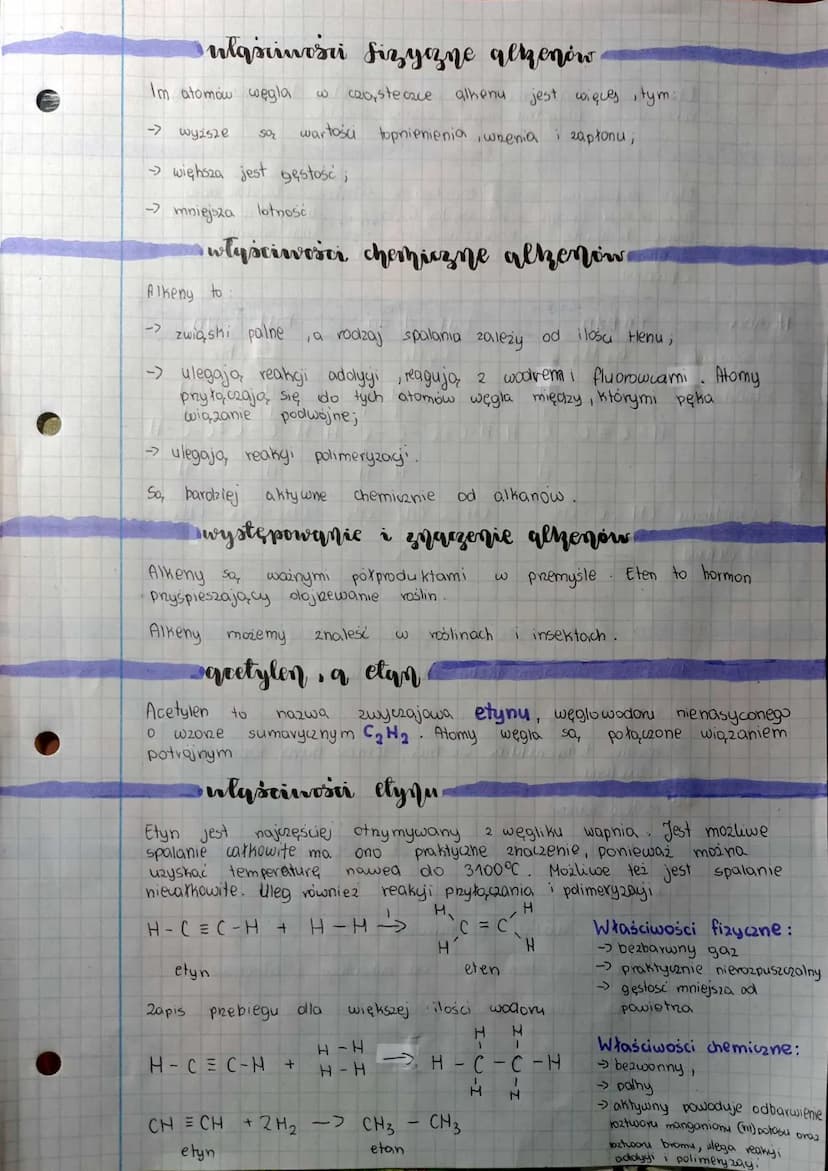 właściwości fizyczne alkenów
Im atomów węgla w cząsteczce alkenu jest więcej, tym:
-> wyższe są wartości topnienienia, wrzenia i zapłonu;
-> większa jest gęstość;
-> mniejsza lotność
właściwości chemiczne alkenów
Alkeny to:
-> związki palne, a rodzaj spalania zależy od ilości tlenu;
-> ulegają reakcji addycji, reagują z wodorem i fluorowcami. Atomy
przyłączają się do tych atomów węgla między, którymi pęka
wiązanie podwójne;
-> ulegają reakcji polimeryzacji.
Są bardziej aktywne chemicznie od alkanów.
występowanie i znaczenie alkenów
Alkeny są ważnymi półproduktami w przemyśle. Eten to hormon
przyśpieszający dojrzewanie roślin.
Alkeny możemy znaleść w roślinach i insektach.
acetylen, a etan
Acetylen to nazwa zwyczajowa etynu, węglowodoru nienasyconego
o wzorze sumarycznym C₂H₂. Atomy węgla są połączone wiązaniem
potrójnym
właściwości etynu
Etyn jest najczęściej otrzymywany z węgliku wapnia. Jest możliwe
spalanie całkowite ma ono praktyczne znaczenie, ponieważ można
uzyskać temperaturę nawed do 3100°C. Możliwe też jest spalanie
niecałkowite. Uleg również reakcji przyłączania i polimeryzacji
H H
H - C ≡ C - H + H - H -> C = C
H H
etyn eten
Zapis przebiegu dla większej ilości wodoru
H H
H - H
H - C ≡ C - H + -> H - C - C - H
H - H
H H
CH ≡ CH + 2H₂ -> CH₃ - CH₃
etyn etan
Właściwości fizyczne:
-> bezbarwny gaz
-> praktycznie nierozpuszczalny
-> gęstość mniejsza od
powietrza
Właściwości chemiczne:
-> bezwonny,
-> palny
-> aktywny powoduje odbarwienie
roztworu manganianu (VII) potasu oraz
roztworu bromu, ulega reakcji
addycji i polimeryzacji